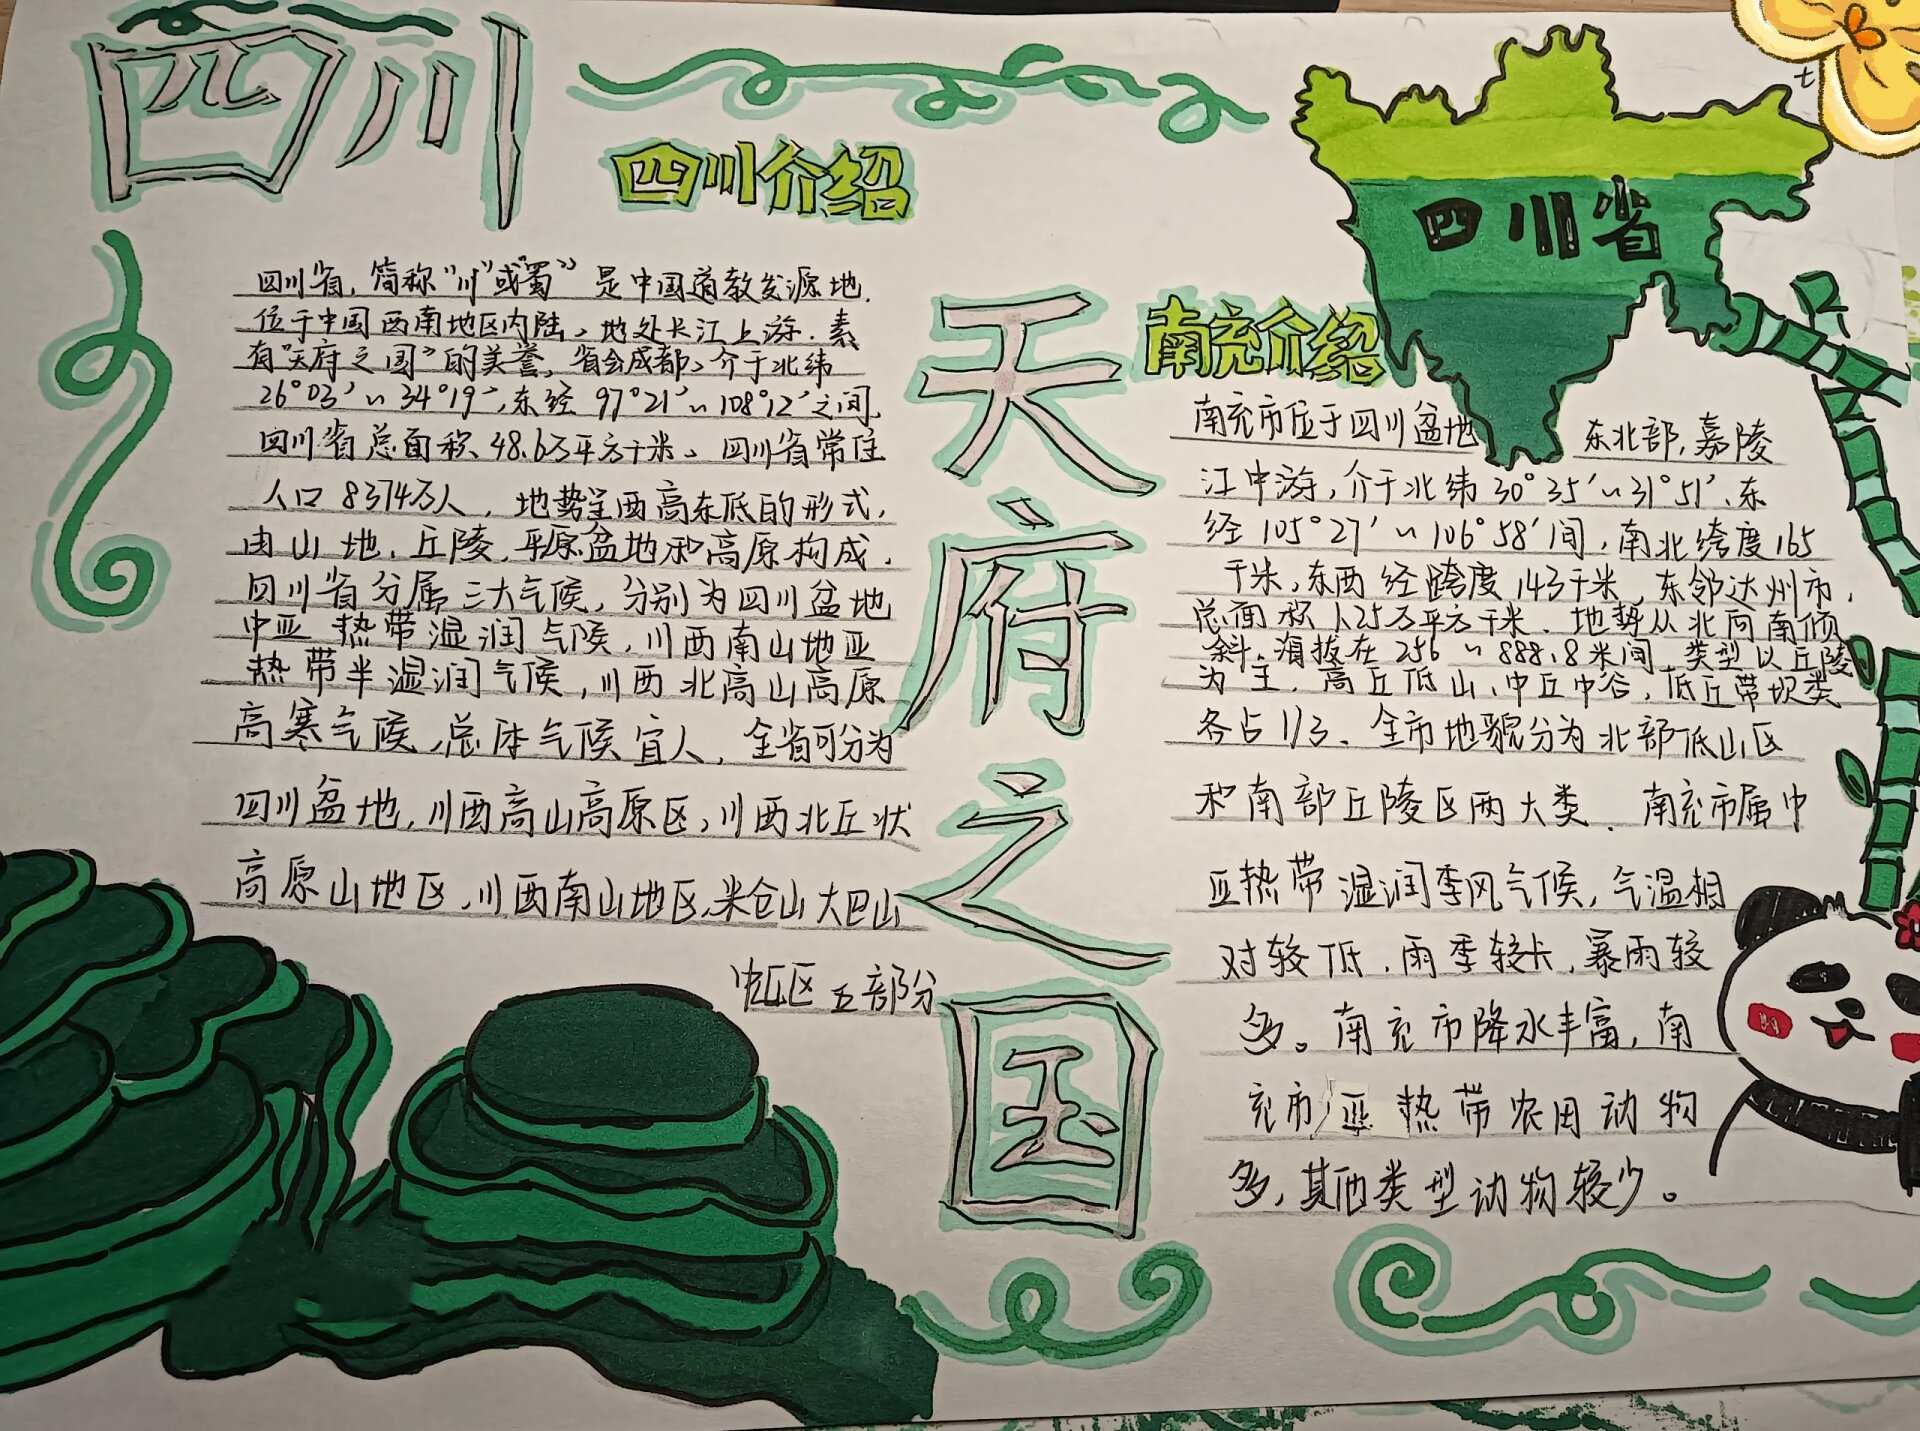 四川
四川介绍
四川省,简称“川”或“蜀”是中国道教发源地.
位于中国西南地区内陆、地处长江上游.素
有“天府之国”的美誉,省会成都、介于北纬
26°03′~34°19′,东经97°21′~108°12′之间,
四川省总面积48.6万平方千米、四川省常住
人口8374万人,地势呈西高东低的形式,
由山地、丘陵,平原盆地和高原构成,
四川省分属三大气候,分别为四川盆地
中亚热带湿润气候,川西南山地亚
热带半湿润气候,川西北高山高原
高寒气候,总体气候宜人,全省可分为
四川盆地,川西高山高原区,川西北丘状
高原山地区,川西南山地区,米仓山大巴山
中山区五部分
天府之国
四川省
南充介绍
南充市位于四川盆地 东北部,嘉陵
江中游,介于北纬30°35′~31°51′、东
经105°27′~106°58′间,南北跨度165
千米,东西经跨度143千米,东邻达州市,
总面积1.25万平方千米、地势从北向南倾
斜,海拔在256~888.8米间,类型以丘陵
为主,高丘低山、中丘中谷,低丘带坝类
各占1/3、全市地貌分为北部低山区
和南部丘陵区两大类、南充市属中
亚热带湿润季风气候,气温相
对较低,雨季较长,暴雨较
多。南充市降水丰富,南
充市亚热带农田动物
多,其他类型动物较少。